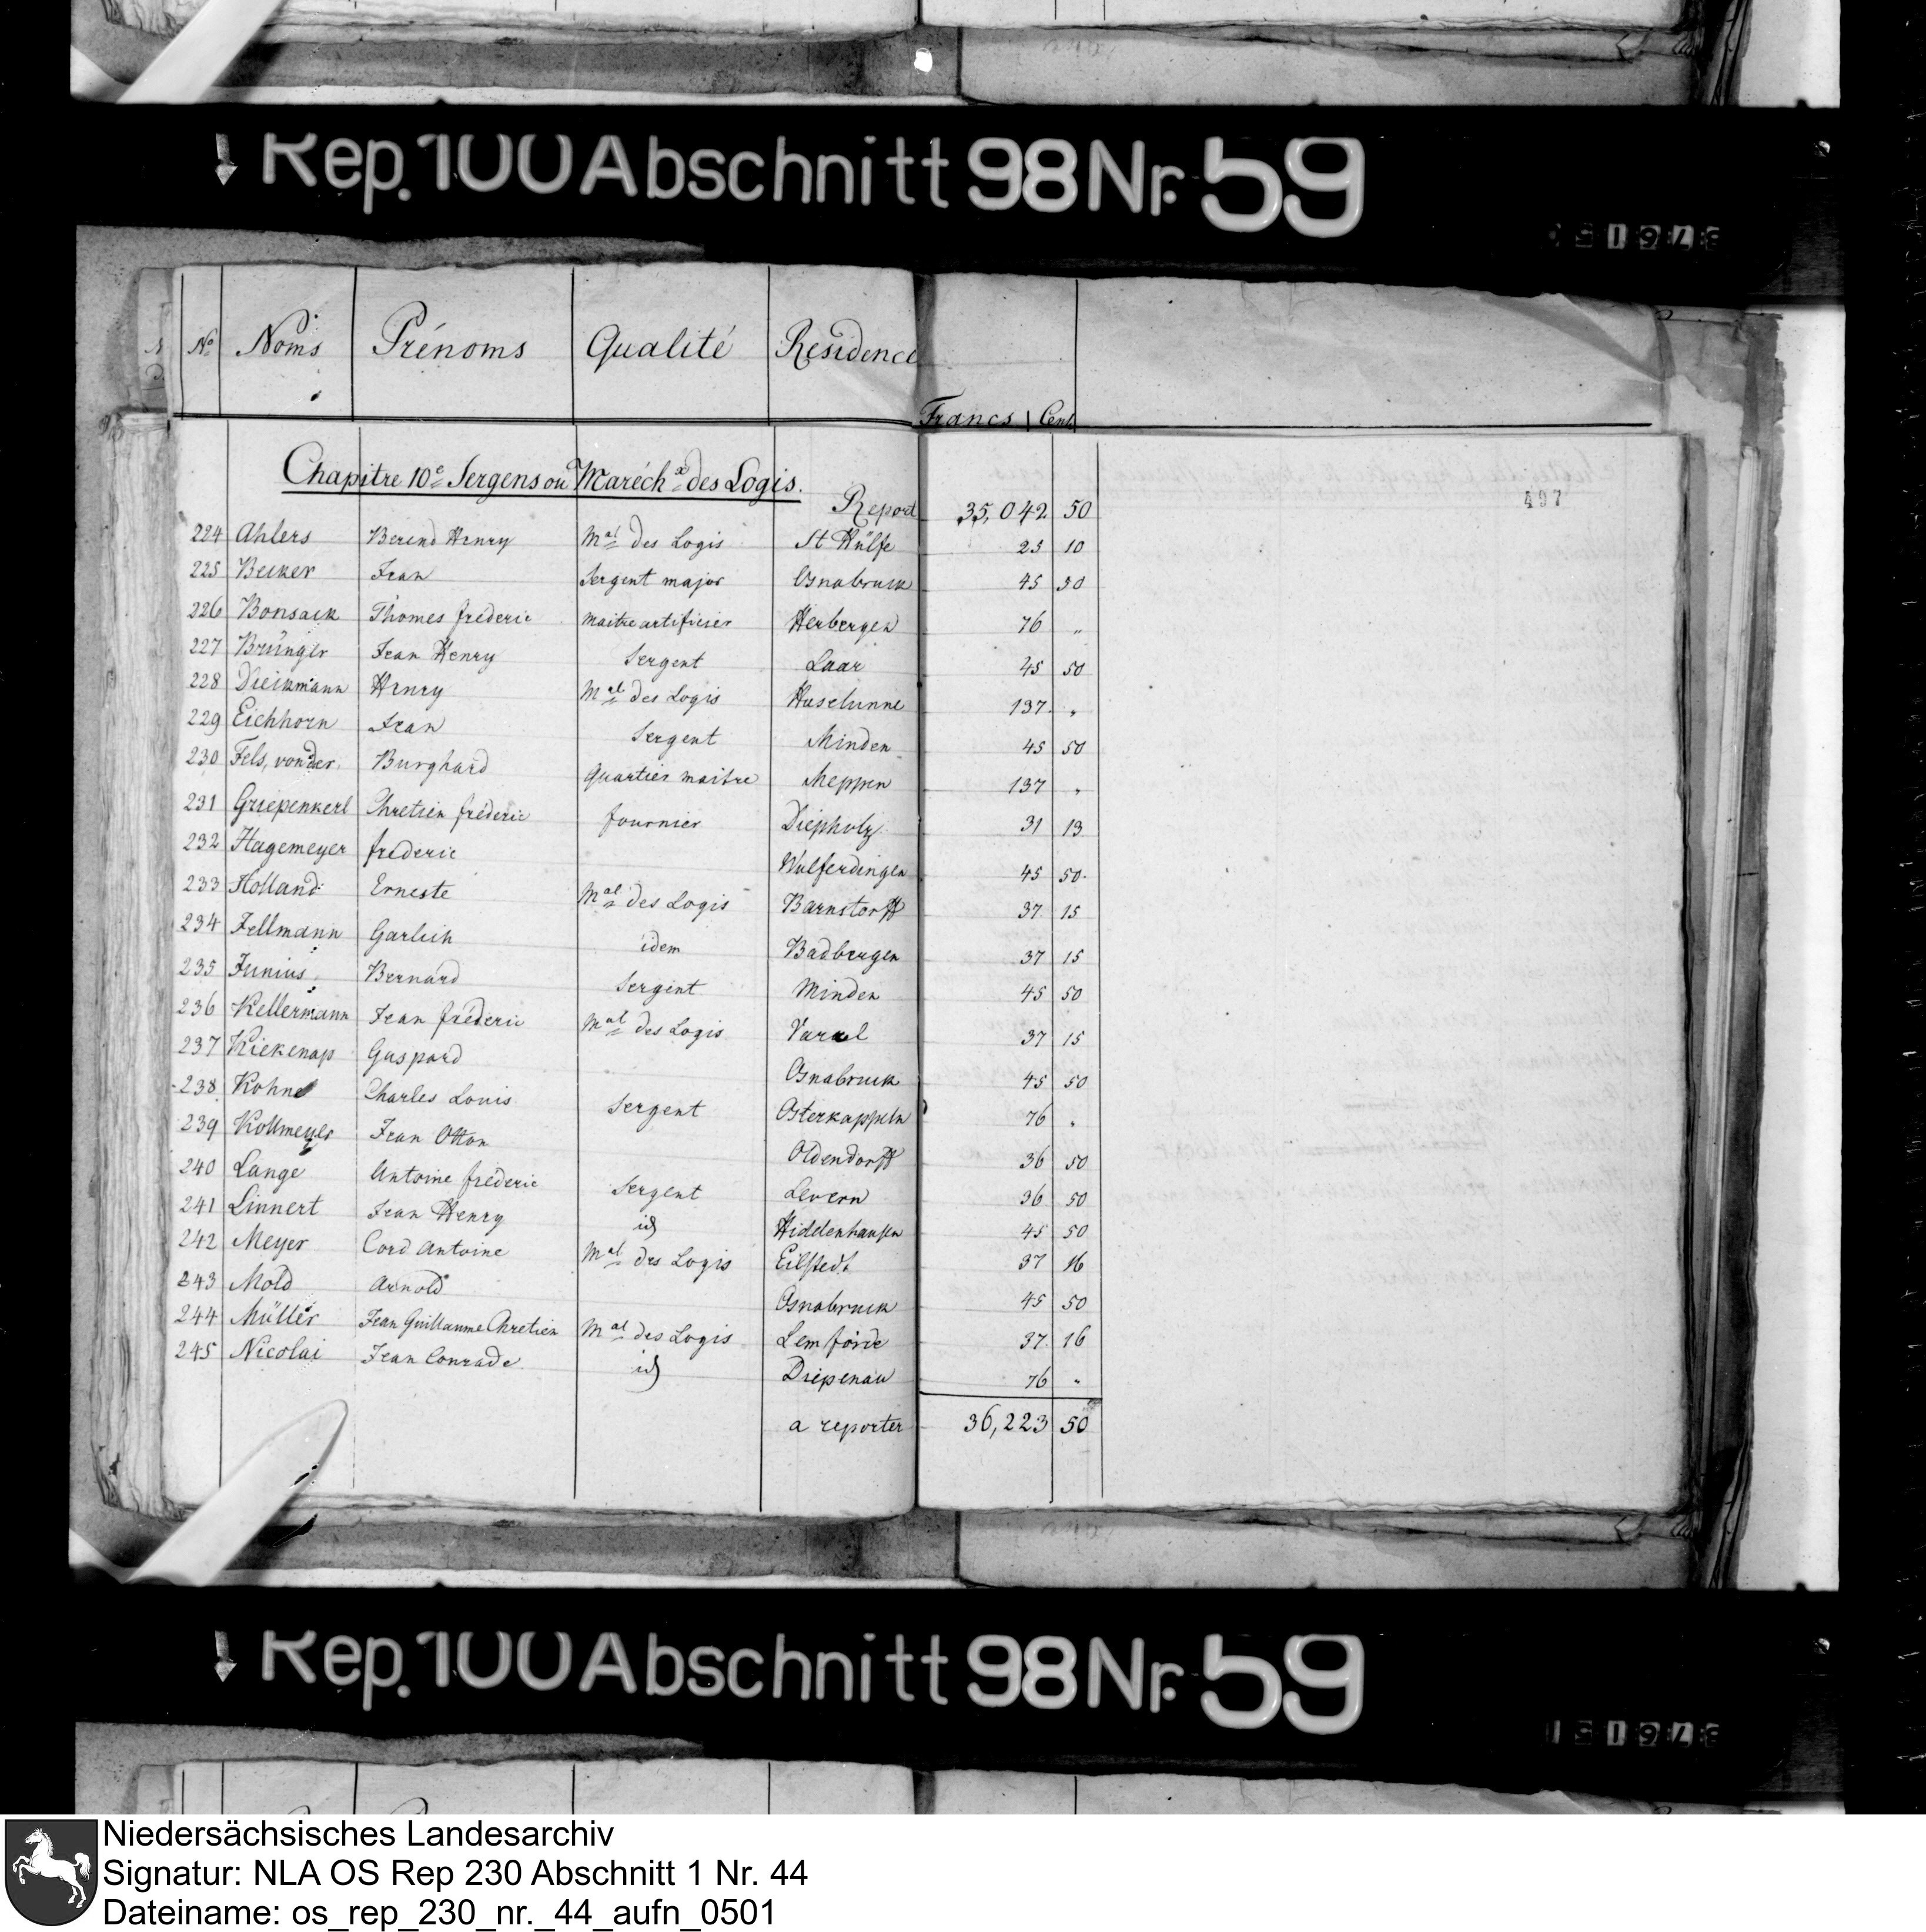 Rep. 100 Abschnitt 98 Nr. 59
No Noms Prénoms Qualité Residence
Francs Cent
Chapitre 10e Sergens ou Maréchx des Logis.
497
Report 35,042 50
224 Ahlers Berend Henry Mal des Logis St Hülfe 25 10
225 Becker Jean Sergent major Osnabruck 45 50
226 Bonsack Thomes frederic maitre artificier Herbergen 76 "
227 Brünger Jean Henry Sergent Laar 45 50
228 Dieckmann Henry Mal des Logis Haselunne 137 "
229 Eichhorn Jean Sergent Minden 45 50
230 Fels, von der Burghard quartier maitre Meppen 137 "
231 Griepenkerl Chretien fréderic fournier Diepholz 31 13
232 Hagemeyer frederic Wulferdingen 45 50
233 Holland Erneste Mal des Logis Barnstorff 37 15
234 Jellmann Garlich idem Badbergen 37 15
235 Junius Bernard Sergent Minden 45 50
236 Kellermann Jean fréderic Mal des Logis Varel 37 15
237 Kiekenap Gaspard Osnabruck 45 50
238 Kohne Charles Louis Sergent Osterkappeln 76 "
239 Kollmeyer Jean Otton Oldendorff 36 50
240 Lange Antoine frederic Sergent Levern 36 50
241 Linnert Jean Henry id Hiddenhausen 45 50
242 Meyer Cord Antoine Mal des Logis Eilstedt 37 16
243 Mold Arnold Osnabruck 45 50
244 Müller Jean Guillaume Chretien Mal des Logis Lemförde 37 16
245 Nicolai Jean Conrade id Diepenau 76 "
a reporter 36,223 50
Rep. 100 Abschnitt 98 Nr. 59
Niedersächsisches Landesarchiv
Signatur: NLA OS Rep 230 Abschnitt 1 Nr. 44
Dateiname: os_rep_230_nr._44_aufn_0501